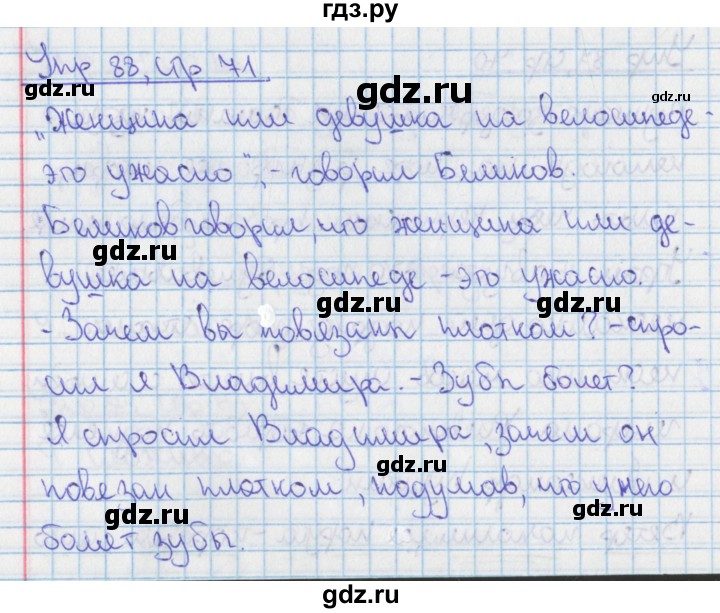 гдз.ру
Упр 88, стр 71
„Женщина или девушка на велосипеде-
это ужасно", - говорил Беликов.
Беликов говорил, что женщина или де-
вушка на велосипеде - это ужасно.
- Зачем вы повязаны платком? - спро-
сил я Владимира. - Зубы болят?
Я спросил Владимира, зачем он
повязан платком, подумав, что у него
болят зубы.
gdz.ru
gdz.ru
gdz.ru
gdz.ru
gdz.ru
gdz.ru
gdz.ru
gdz.ru
gdz.ru
gdz.ru
gdz.ru